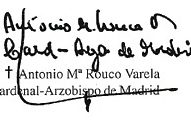 Antonio Mª Rouco
Card-Arzo de Madrid
† Antonio Mª Rouco Varela
ardenal-Arzobispo de Madrid